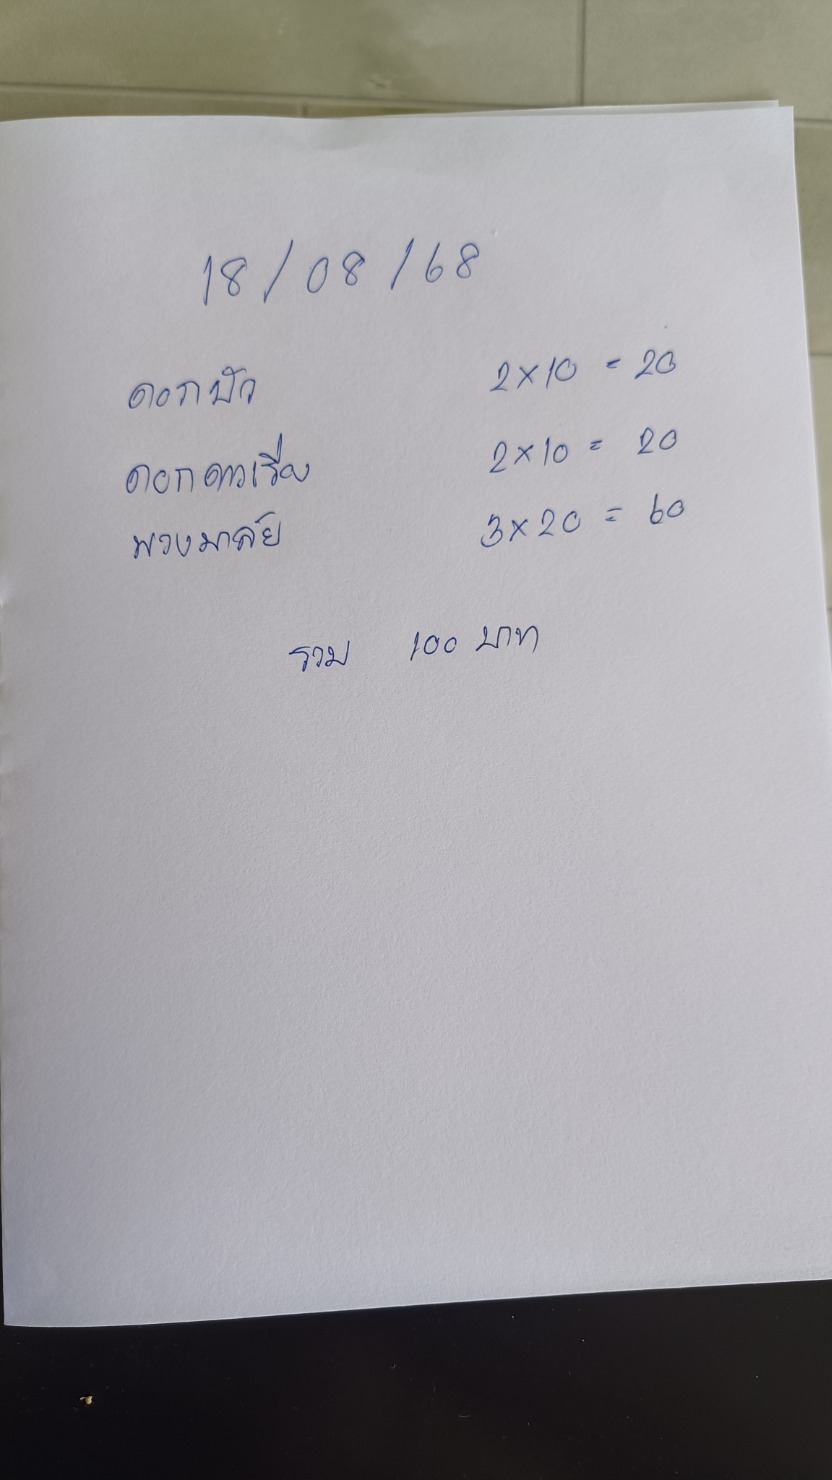 18/08/68
ดอกบัว 2×10 = 20
ดอกดาวเรือง 2×10 = 20
พวงมาลัย 3×20 = 60
รวม 100 บาท